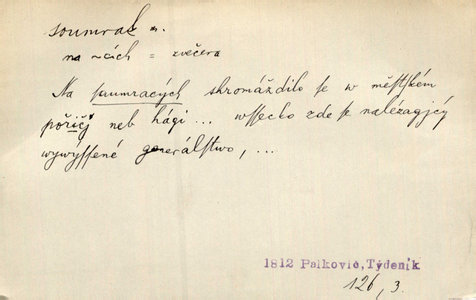 soumrak m.
na ~cích = zvečera
Na saumracých shromáždilo se w městském
pořičj neb hági ... wssecko zde se nalézagjcý
wywýssené generálstwo, ...
1812 Palkovič, Týdeník
126, 3.